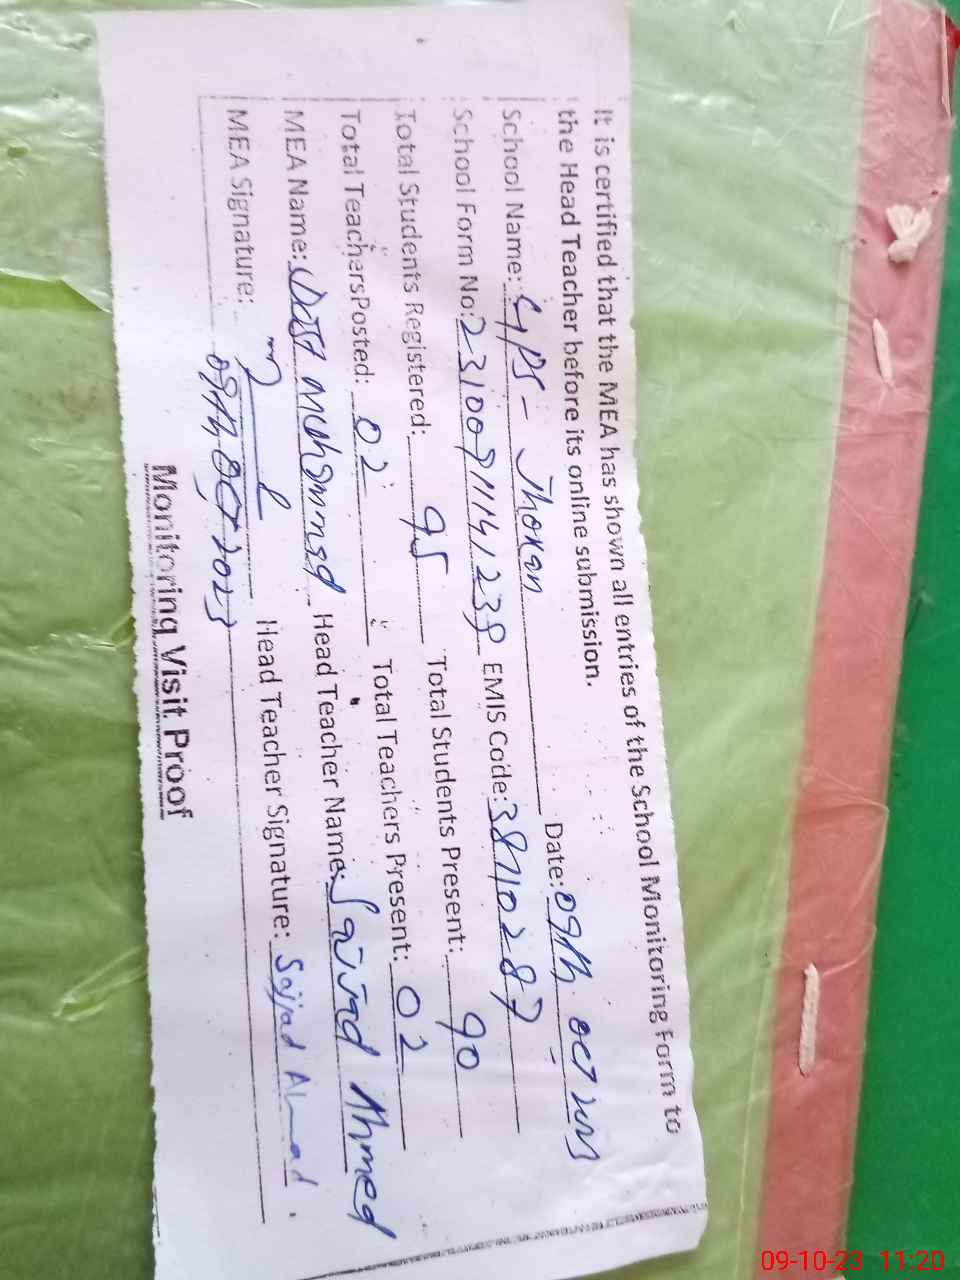 It is certified that the MEA has shown all entries of the School Monitoring Form to
the Head Teacher before its online submission.
School Name: GPS - Jhokan Date: 09th OCT 2023
School Form No: EMIS Code: 38710287
Total Students Registered: 95 Total Students Present: 90
Total Teachers Posted: 02 Total Teachers Present: 02
MEA Name: Mohammad Head Teacher Name: Sajjad Ahmed
MEA Signature: Head Teacher Signature: Sajjad Ahmad
09th OCT 2023
Monitoring Visit Proof
09-10-23 11:20